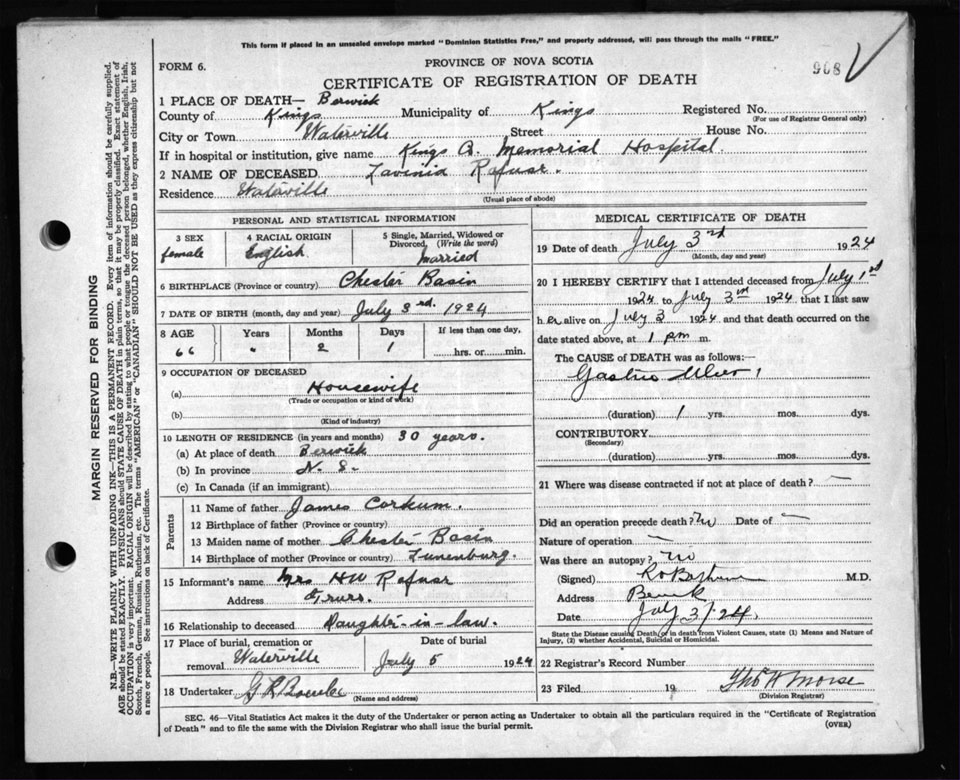 This form if placed in an unsealed envelope marked "Dominion Statistics Free," and property addressed, will pass through the mails "FREE."
908
PROVINCE OF NOVA SCOTIA
FORM 6.
CERTIFICATE OF REGISTRATION OF DEATH
1 PLACE OF DEATH— Berwick
County of Kings Municipality of Kings Registered No.
(For use of Registrar General only)
City or Town Waterville Street House No.
If in hospital or institution, give name Kings Co. Memorial Hospital.
2 NAME OF DECEASED Lavinia Rafuse.
Residence Waterville
(Usual place of abode)
PERSONAL AND STATISTICAL INFORMATION
3 SEX female
4 RACIAL ORIGIN English
5 Single, Married, Widowed or Divorced, (Write the word) Married
6 BIRTHPLACE (Province or country) Chester Basin
7 DATE OF BIRTH (month, day and year) July 3rd. 1924
8 AGE Years Months Days If less than one day,
66 " 2 1 hrs. or min.
9 OCCUPATION OF DECEASED
(a) Housewife
(Trade or occupation or kind of work)
(b)
(Kind of industry)
10 LENGTH OF RESIDENCE (in years and months) 30 years.
(a) At place of death Berwick
(b) In province N. S.
(c) In Canada (if an immigrant)
Parents
11 Name of father James Corkum.
12 Birthplace of father (Province or country)
13 Maiden name of mother Chester Basin
14 Birthplace of mother (Province or country) Lunenburg.
15 Informant's name Mrs HW Rafuse
Address Truro.
16 Relationship to deceased Daughter-in-law.
17 Place of burial, cremation or Date of burial
removal Waterville July 5 1924
18 Undertaker
(Name and address)
MEDICAL CERTIFICATE OF DEATH
19 Date of death July 3rd 1924
(Month, day and year)
20 I HEREBY CERTIFY that I attended deceased from July 1st
1924 to July 3rd 1924 that I last saw
her alive on July 3 1924 and that death occurred on the
date stated above, at 1 pm m.
The CAUSE OF DEATH was as follows:—
Gastric Ulcer
(duration) 1 yrs. mos. dys.
CONTRIBUTORY
(Secondary)
(duration) yrs. mos. dys.
21 Where was disease contracted if not at place of death? —
Did an operation precede death? No Date of —
Nature of operation —
Was there an autopsy? no
(Signed) M.D.
Address Berwick
Date July 3/24
State the Disease causing Death, or in death from Violent Causes, state (1) Means and Nature of
Injury, (2) whether Accidental, Suicidal or Homicidal.
22 Registrar's Record Number
23 Filed 19 Thos H Morse
(Division Registrar)
SEC. 46—Vital Statistics Act makes it the duty of the Undertaker or person acting as Undertaker to obtain all the particulars required in the "Certificate of Registration
of Death" and to file the same with the Division Registrar who shall issue the burial permit.
(OVER)
MARGIN RESERVED FOR BINDING
N.B.—WRITE PLAINLY WITH UNFADING INK—THIS IS A PERMANENT RECORD. Every item of information should be carefully supplied.
AGE should be stated EXACTLY. PHYSICIANS should STATE CAUSE OF DEATH in plain terms, so that it may be properly classified. Exact statement of
OCCUPATION is very important. RACIAL ORIGIN will be described by stating to what people or tongue the deceased person belonged, whether English, Irish,
Scotch, French, German, Russian, Ruthenian, etc. The terms "AMERICAN" or "CANADIAN" SHOULD NOT BE USED as they express citizenship but not
a race or people. See instructions on back of Certificate.